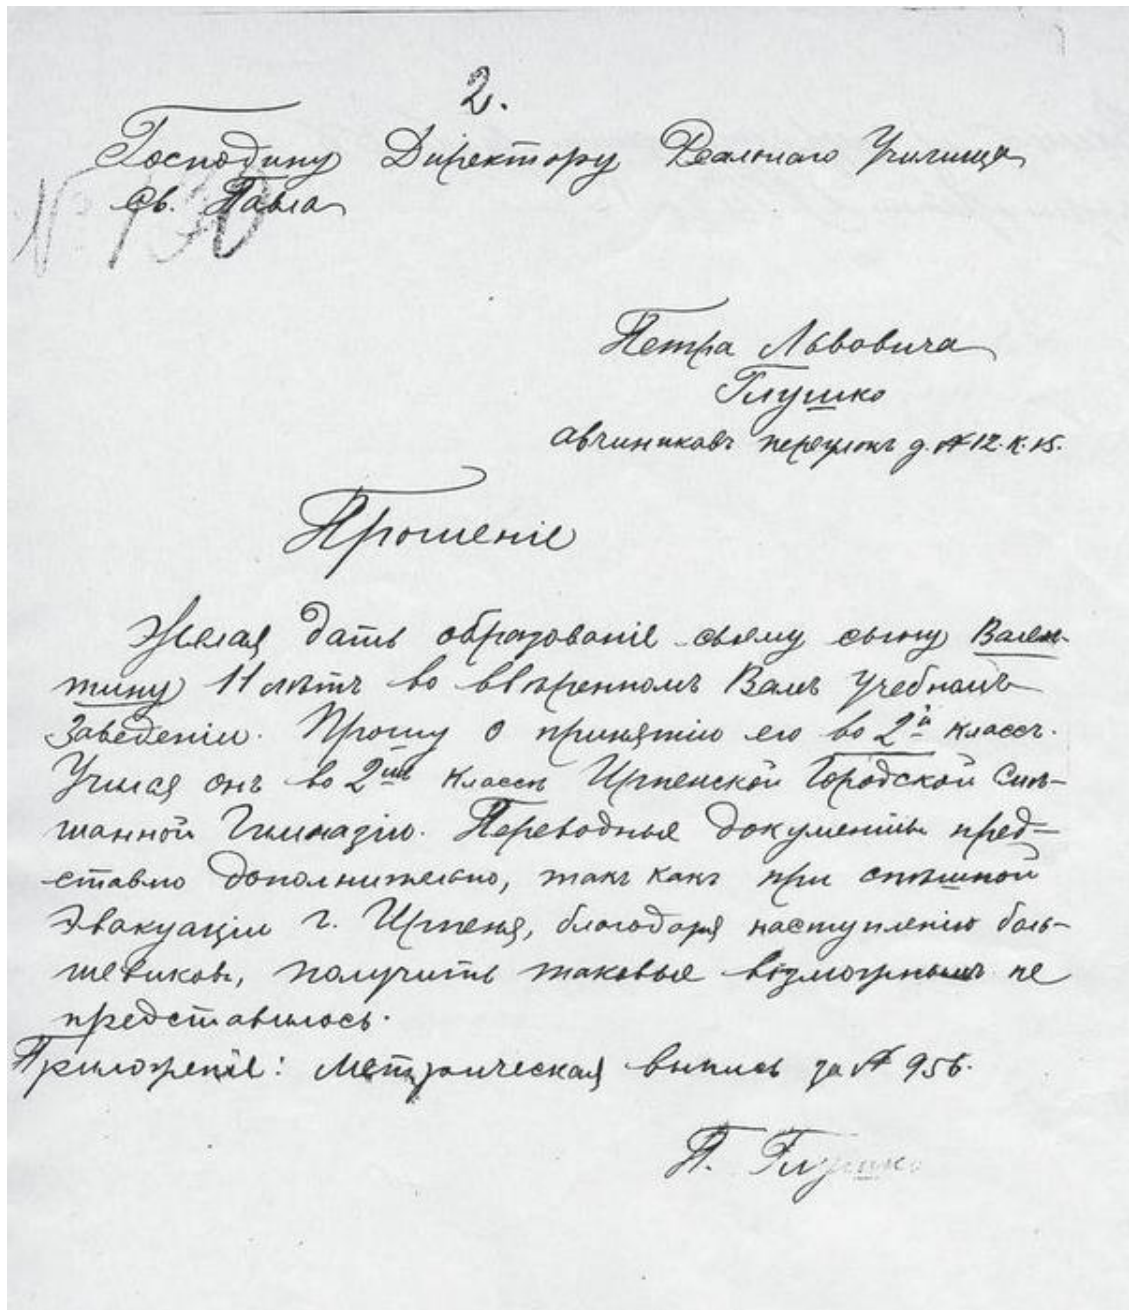 2.
Господину Директору Реальнаго Училища
св. Павла
№ 130
Петра Львовича
Глушко
авчинниковъ переулокъ д. № 12. к. 15.
Прошеніе
Желая дать образованіе своему сыну Вален-
тину 11 лѣтъ во ввѣренномъ Вамъ учебномъ
Заведеніи. Прошу о принятію его во 2й классъ.
Учился онъ во 2мъ классѣ Ирпенской Городской Смѣ-
шанной Гимназіи. Переводные документы пред-
ставлю дополнительно, такъ какъ при спѣшной
Эвакуаціи г. Ирпеня, благодаря наступленію боль-
шевиковъ, получить таковые возможнымъ не
представилось.
Приложеніе: Метрическая выпись за № 956.
П. Глушко